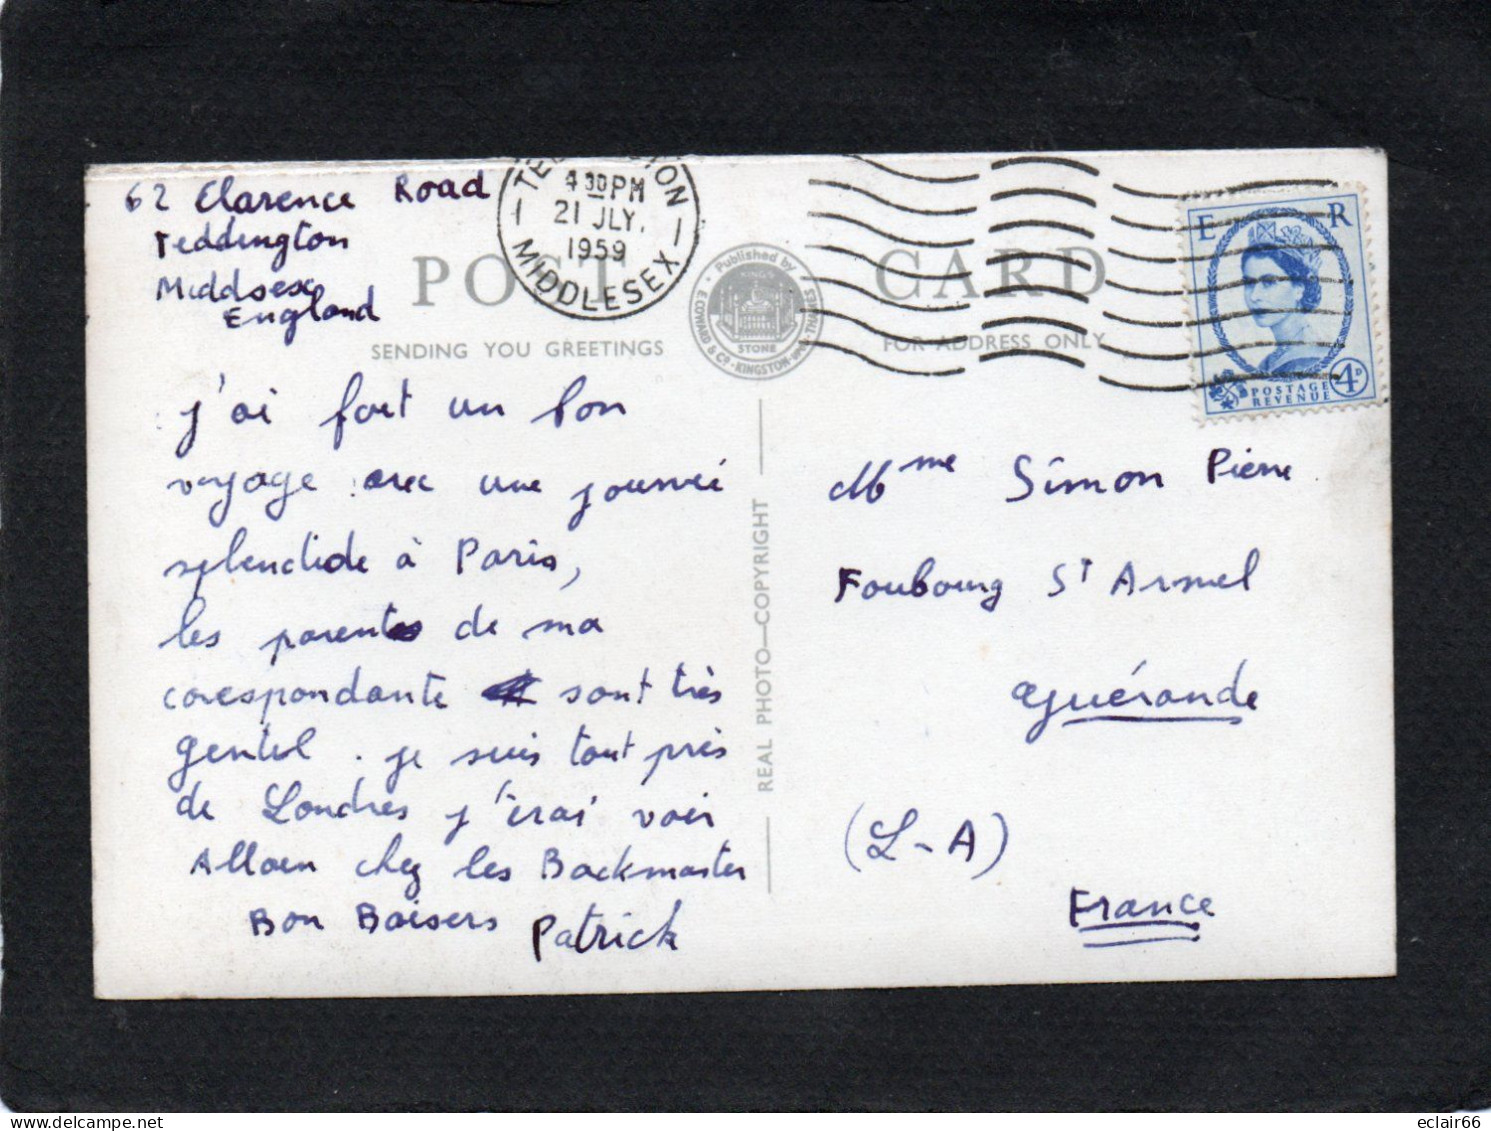 62 Clarence Road
Teddington
Middsesex
England
TEDDINGTON
4 30 PM
21 JLY.
1959
MIDDLESEX
POST CARD
SENDING YOU GREETINGS
FOR ADDRESS ONLY
Published by
KING'S
STONE
EDWARD & Co. KINGSTON-UPON-THAMES
E R
POSTAGE
REVENUE
4D
j'ai fait un bon
voyage avec une journéé
splendide à Paris,
les parents de ma
corespondante sont très
gentil. je suis tout près
de Londres j'irai voir
Allaen chez les Backmaster
Bon Baisers Patrick
REAL PHOTO—COPYRIGHT
Mme Simon Pierre
Foubourg St Armel
Guérande
(L-A)
France
eclair66